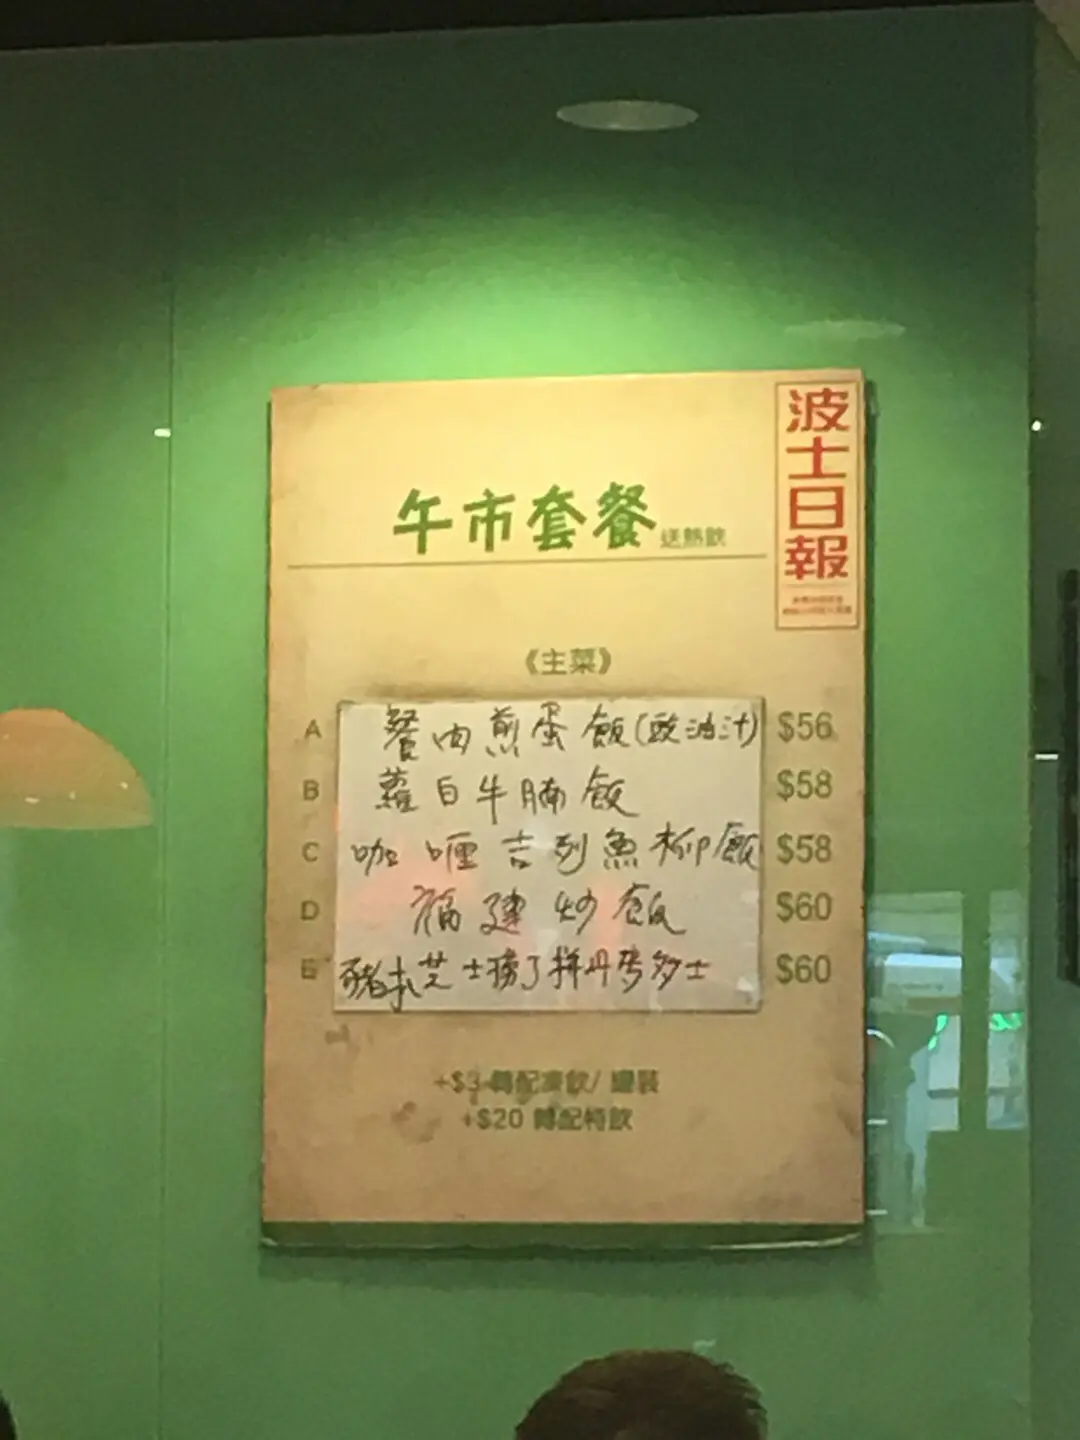 波士日報
午市套餐 送熱飲
《主菜》
A 餐肉煎蛋飯(豉油汁) $56
B 蘿白牛腩飯 $58
C 咖喱吉列魚柳飯 $58
D 福建炒飯 $60
E 豬扒芝士撈丁拼丹麥多士 $60
+$3 轉配凍飲/
+$20 轉配特飲